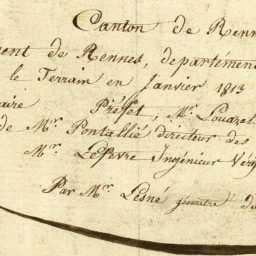 Canton de Renn
ment de Rennes, département
le Terrain en Janvier 1813
aire Préfet, Mr. Louazel
de Mr. Pontallié directeur des
Mr. Lefevre Ingénieur Véri
Par Mr. Lesné géomètre de